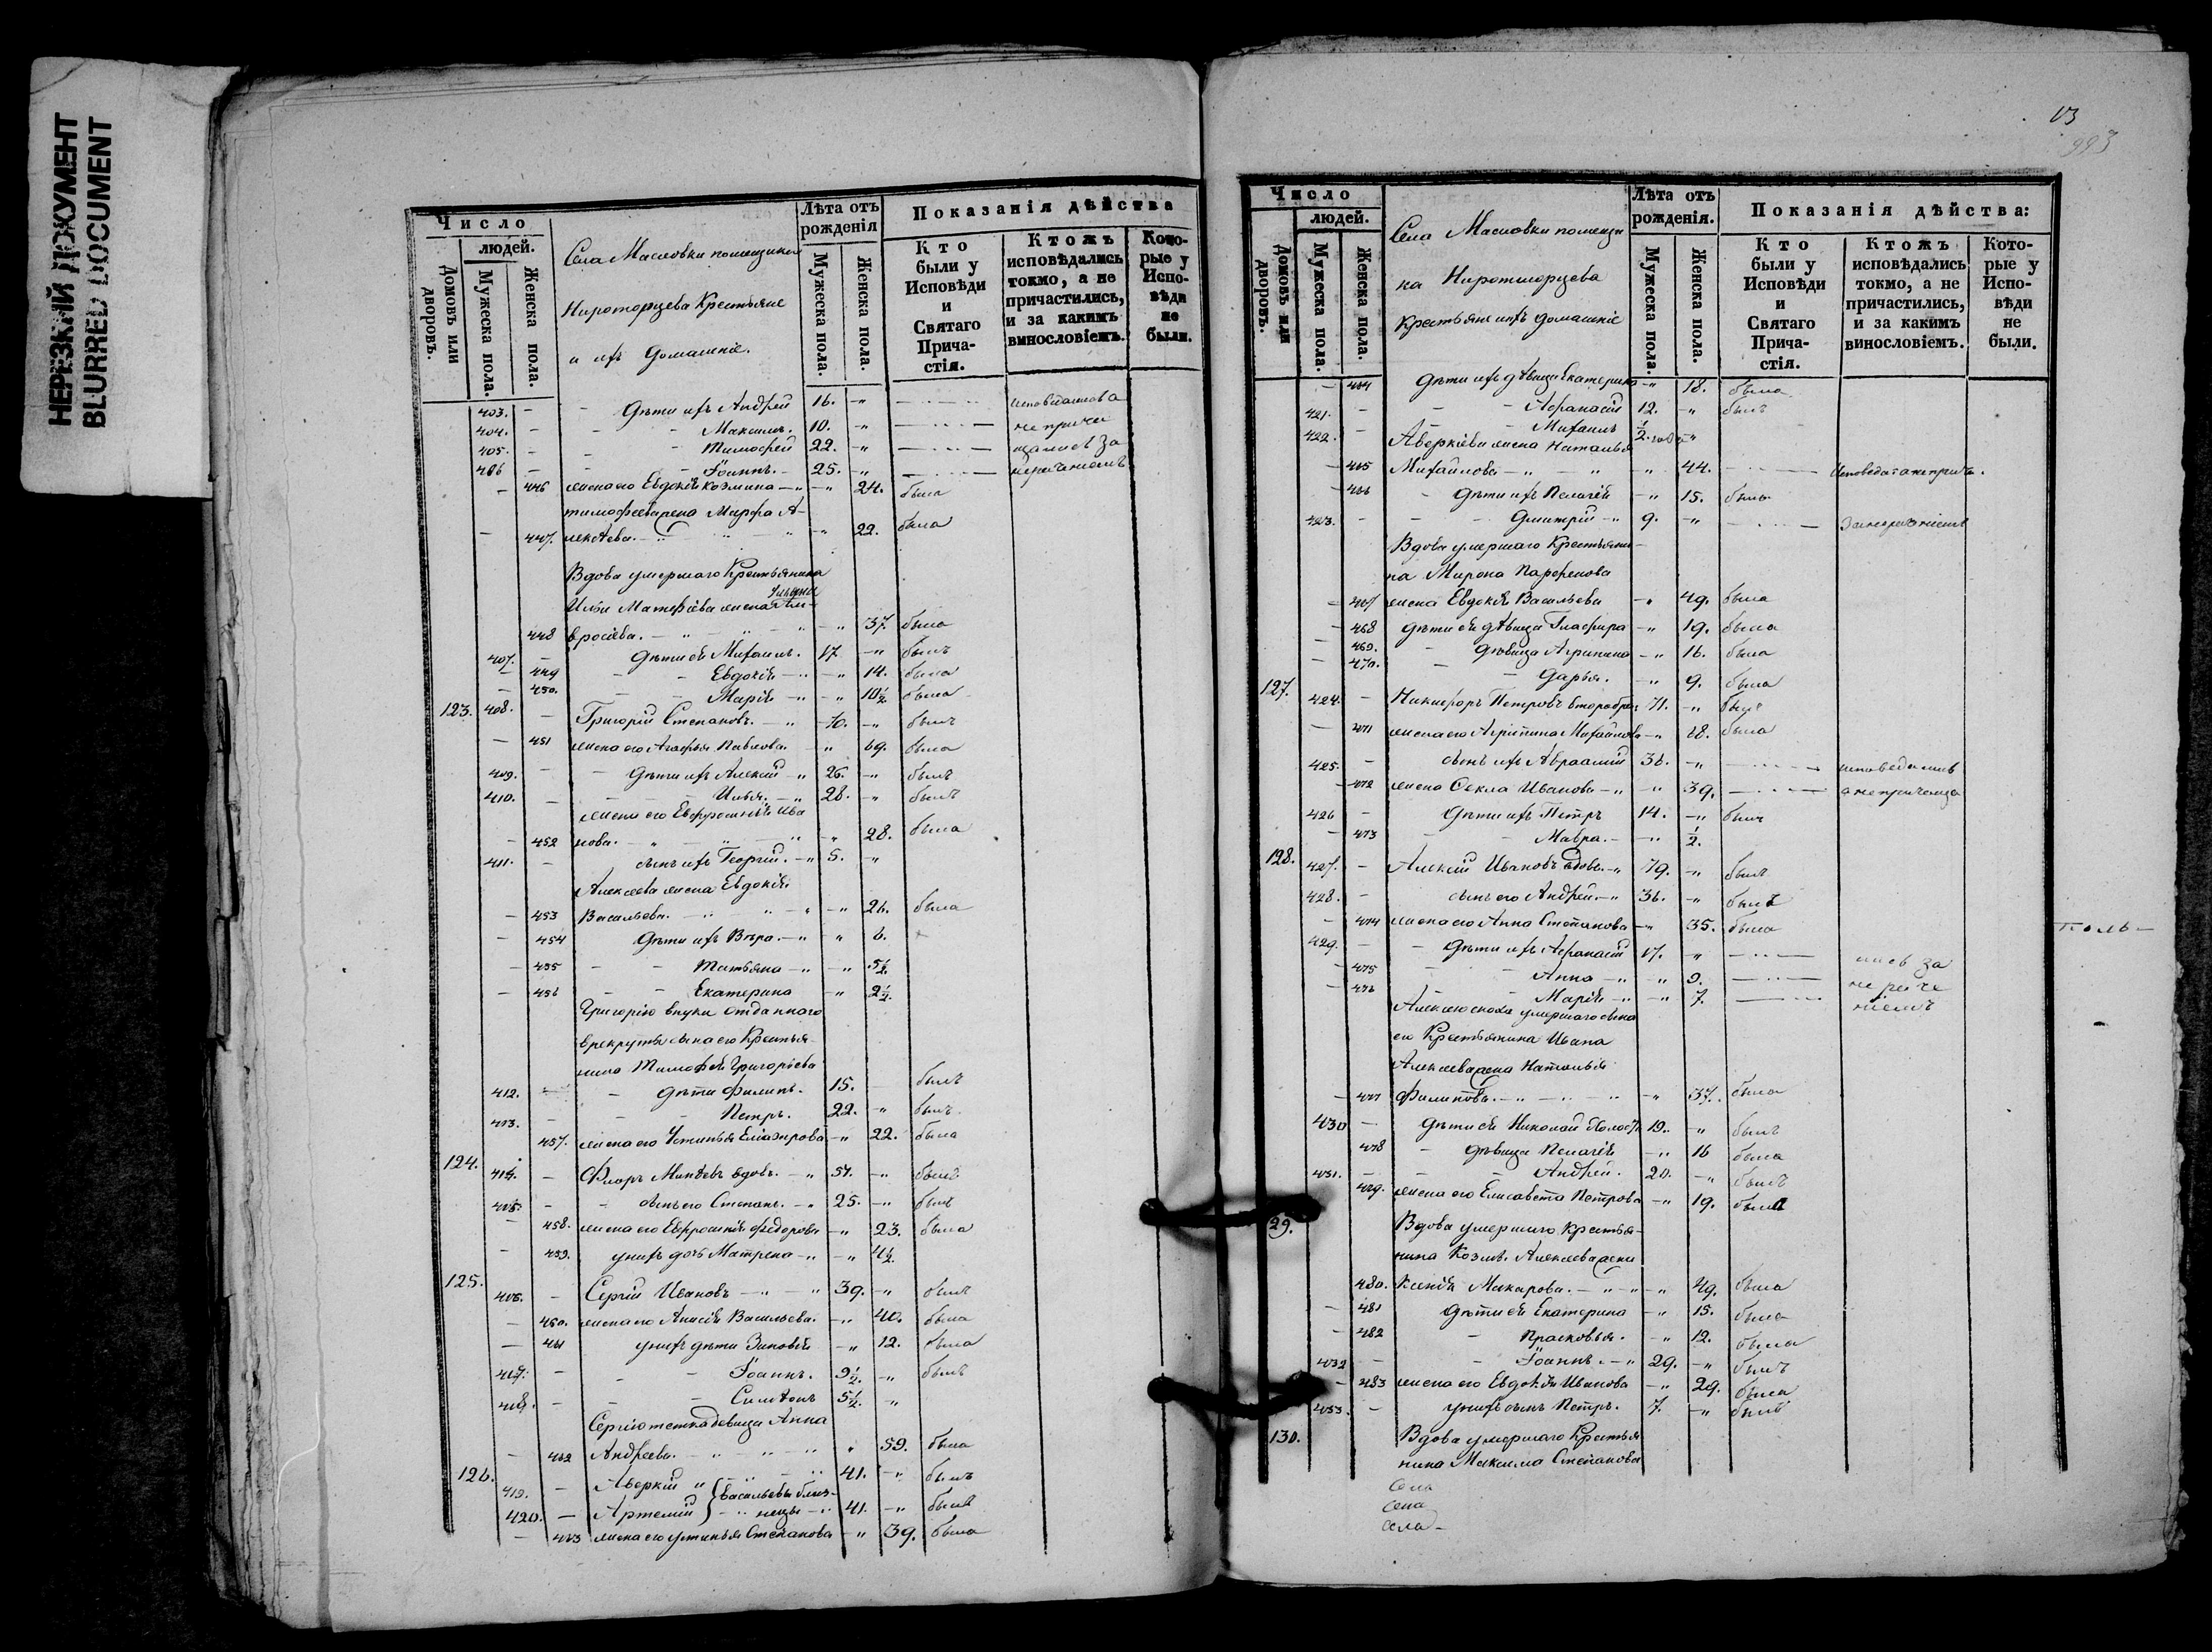 НЕРЕЗКИЙ ДОКУМЕНТ
BLURRED DOCUMENT
Число
людей.
Домовъ или дворовъ.
Мужеска пола.
Женска пола.
Села Масловки помещика
Крестьяне
и ихъ домашніе.
Лѣта отъ рожденія
Мужеска пола.
Женска пола.
Показанія дѣйства
Кто были у Исповѣди и Святаго Причастія.
Ктожъ исповѣдались токмо, а не причастились, и за какимъ винословіемъ.
Которые у Исповѣди не были.
403. - - дѣти ихъ Андрей 16. -"
404. - - Максимъ. 10. -"
405. - - Тимофей 22. -"
406 - - Іоаннъ. - 25. -"
- 446 жена его Евдокія Козмина -" 24. была
Тимофеева жена Марфа А-
- 447. лексѣева. -" 22. была
Вдова умершаго Крестьянина
448 37. была
407. - дѣти ея Михаилъ. 17 -" былъ
- 449 - Евдокія -" 14. была
- 450. - Марія -" 10½ была
123. 408. - Григорій Степановъ. -" 70. -" былъ
- 451 жена его Агафья Павлова. -" 69. была
409. - дѣти ихъ Алексій -" 26. -" былъ
410. - Илья. -" 28. -" былъ
жена его Евфросинія Ива
- 452 нова. -" 28. была
411. - сынъ ихъ Георгій. -" 5. -"
Алексеева жена Евдокія
- 453 Васильева. -" 26. была
- 454 дѣти ихъ Вѣра. -" 6.
- 455 - - Татьяна -" 5½
- 456 - - Екатерина -" 2½
Григорію внуки отданнаго
врекруты сына его Крестья-
нина Тимофея Григоріева
412. - дѣти Филипъ. 15. былъ
413. - - Петръ. 22. -" былъ
457. жена его Устинья -" 22. была
124. 414. - Флоръ вдовъ. -" 51. -" былъ
415. - - сынъ его Степанъ. -" 25. -" былъ
458. жена его Евфросинія Федорова -" 23. была
- 459. у нихъ дочь Матрена -" 4½
125. 416. - Сергій Ивановъ -" 39. -" былъ
- 460. жена его Анисія Васильева. -" 40. была
- 461 у нихъ дѣти Зиновія -" 12. была
417. - - Іоаннъ. 9½ -" былъ
418. - - Симеонъ 5½ -"
Сергію тетка девица Анна
- 462 Андреева. -" 59. была
126. 419. - Аверкій " 41. -" былъ
Васильевы близ-
420. - Артемій нецы -" 41. -" былъ
- 463 жена его Устинья Степанова -" 39. была
993
Число
людей.
Домовъ или дворовъ.
Мужеска пола.
Женска пола.
Села Масловки помещи
ка
Крестьяне ихъ домашніе
Лѣта отъ рожденія.
Мужеска пола.
Женска пола.
Показанія дѣйства:
Кто были у Исповѣди и Святаго Причастія.
Ктожъ исповѣдались токмо, а не причастились, и за какимъ винословіемъ.
Которые у Исповѣди не были.
- 464 дѣти ихъ дѣвица Екатерина -" 18. была
421. - - Афанасій 12. -" былъ
422. - - Михаилъ ½ года -"
Аверкіева жена Наталья
- 465 Михайлова -" 44.
- 466 - дѣти ихъ Пелагія -" 15. была
423. - - Дмитрій -" 9. -"
Вдова умершаго Крестьяни-
на Мирона Парфенова
- 467 жена Евдокія Васильева -" 49. была
- 468 дѣти ея дѣвица Глафира -" 19. была
- 469. - дѣвица Агрипина -" 16. была
- 470. - Дарья. -" 9. была
127. 424. - Никифоръ Петровъ 71. -" былъ
- 471 жена его Агрипина Михайлова -" 68. была
425. - сынъ ихъ Авраамій 36. -"
- 472 жена Секла Иванова -" 39.
426 - дѣти ихъ Петръ 14. -" былъ
- 473 - Мавра. -" ½.
128. 427. - Алексій Ивановъ вдовъ. -" 79. -" былъ
428. - сынъ его Андрей. -" 36. -" былъ
- 474 жена его Анна Степанова -" 35. была
429. - - дѣти ихъ Афанасій 17. -"
- 475 - Анна -" 9.
- 476 - Марія -" 7.
Алексею сноха умершаго сына
его Крестьянина Ивана
Алексеева жена Наталья
- 477 Филипова. -" 37. была
430 - дѣти ея Николай 19. -" былъ
478 - дѣвица Пелагія -" 16 была
431. - - Андрей. 20. -" былъ
479. жена его Елисавета Петрова -" 19. была
29. Вдова умершаго крестья-
нина Козмы Алексеева жена
480. Ксенія Макарова. -" 49. была
- 481 дѣти ея Екатерина -" 15. была
- 482 - Прасковья. -" 12. была
432 - - Іоаннъ. -" 29. -" былъ
- 483 жена его Евдокія Иванова -" 29. была
433. - у нихъ сынъ Петръ. 7. -" былъ
130. Вдова умершаго Крестья
нина Максима Степанова
Села